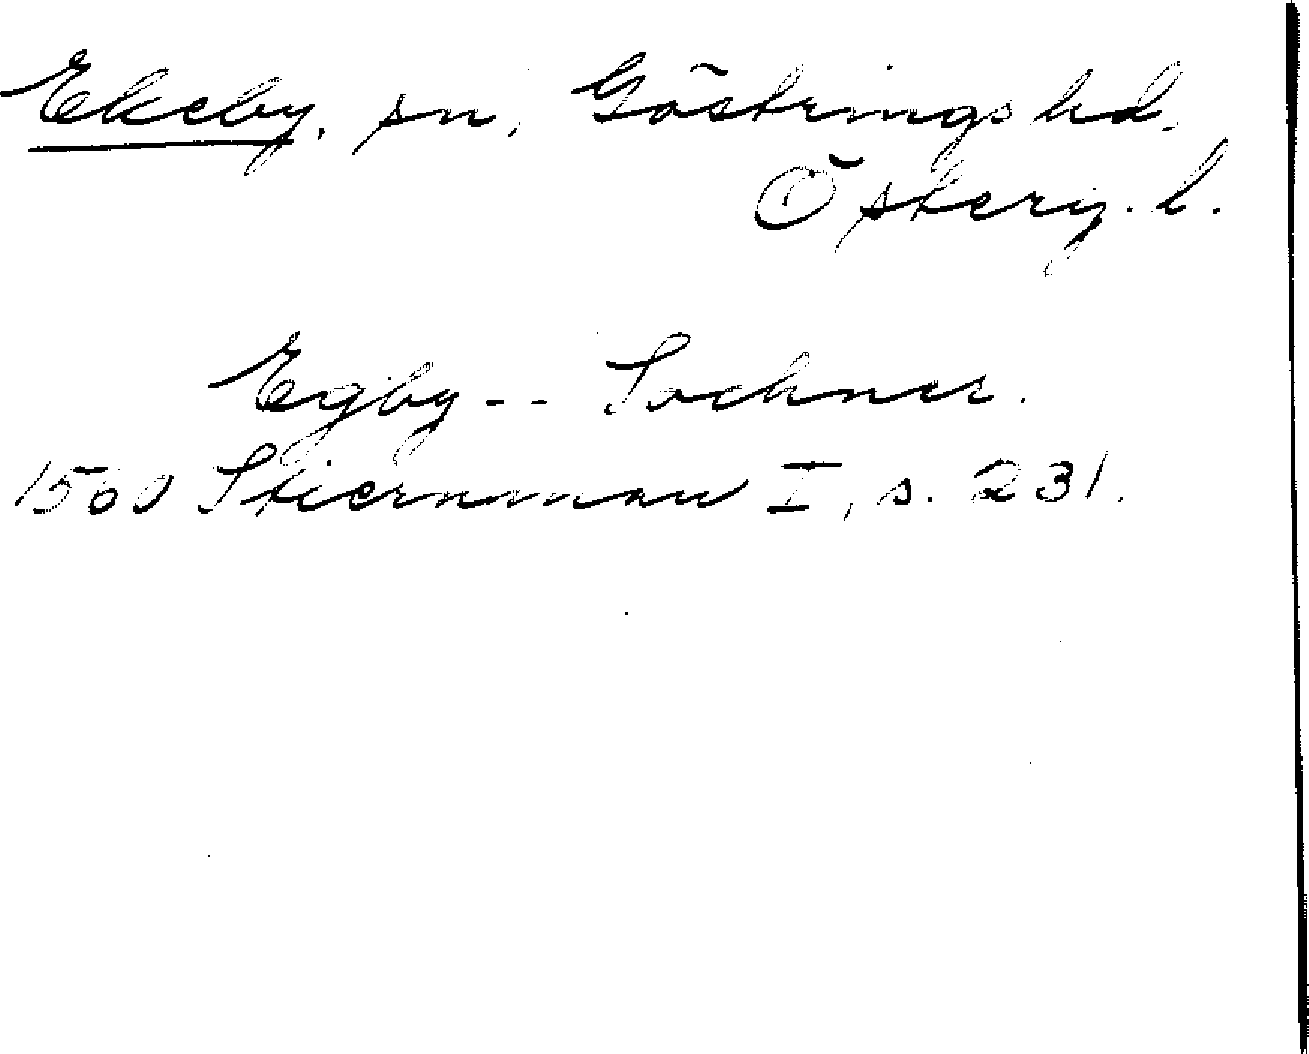 Ekeby, sn, Göstrings hd.
Österg. l.
Egby -- Sochner.
1560 Stiernman I, s. 231.